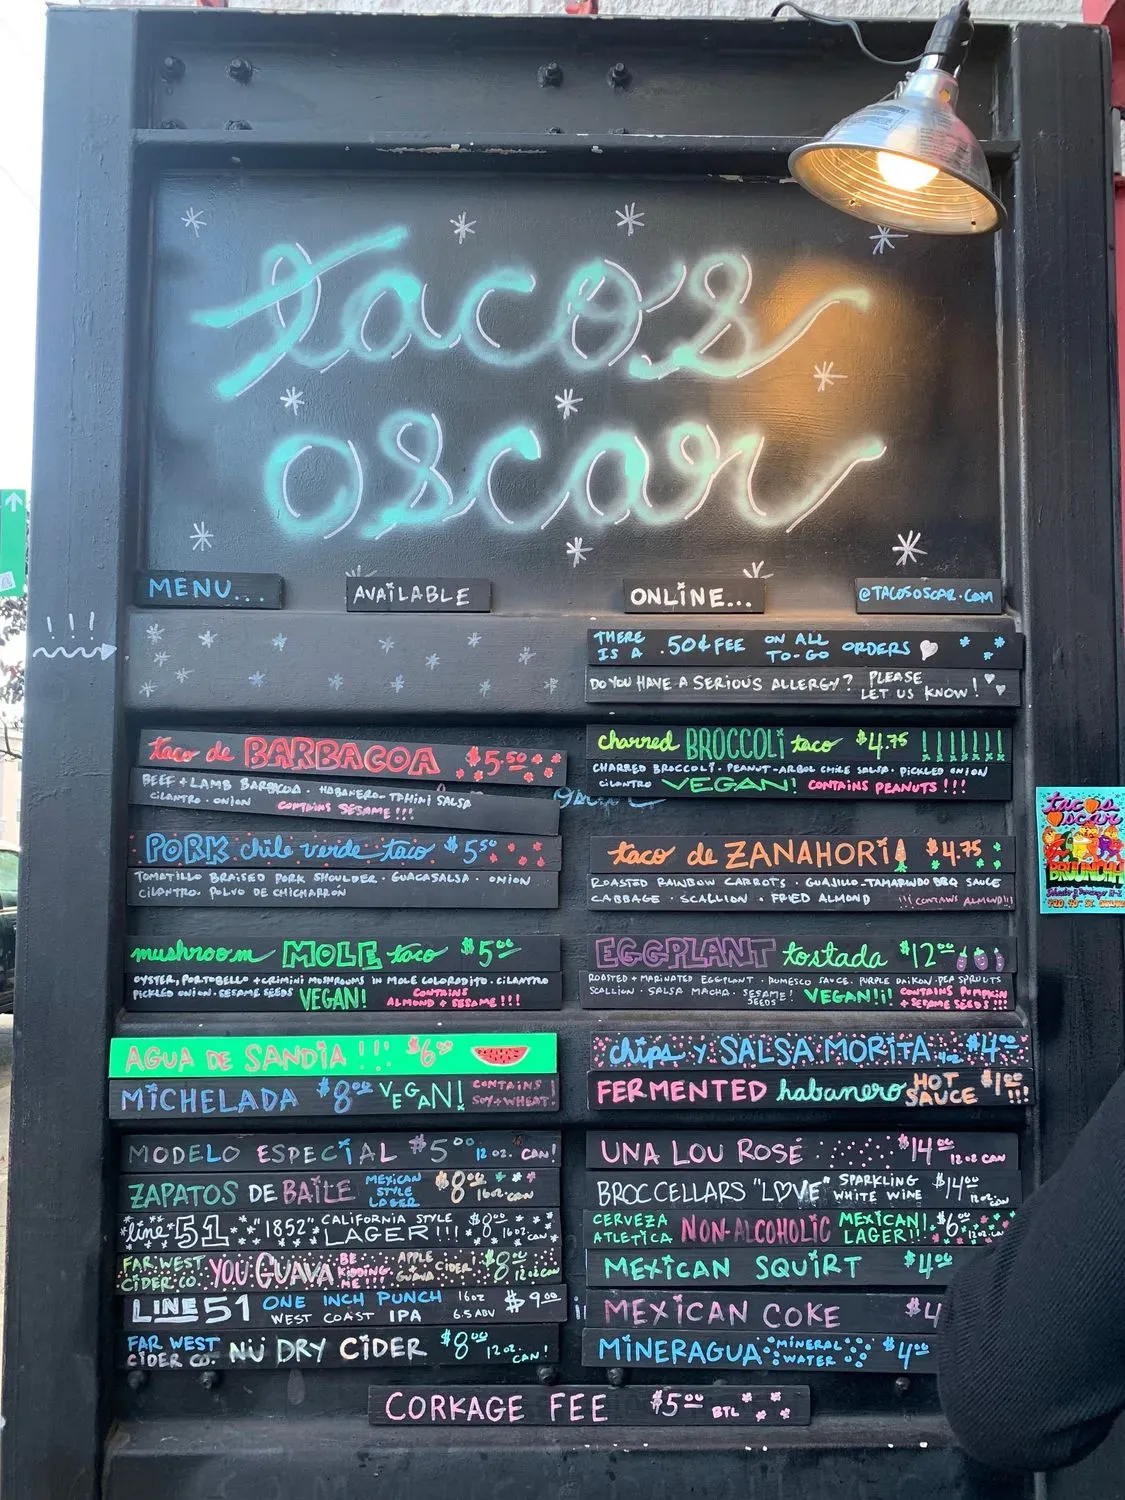 tacos
oscar
MENU...
AVAILABLE
ONLINE...
@TACOSOSCAR.COM
!!!
THERE IS A .50¢ FEE ON ALL TO-GO ORDERS
DO YOU HAVE A SERIOUS ALLERGY? PLEASE LET US KNOW!
taco de BARBACOA $5.50
BEEF + LAMB BARBACOA · HABANERO-TAHINI SALSA
CILANTRO · ONION CONTAINS SESAME!!!
PORK chile verde taco $5.50
TOMATILLO BRAISED PORK SHOULDER · GUACASALSA · ONION
CILANTRO · POLVO DE CHICHARRÓN
mushroom MOLE taco $5.00
OYSTER, PORTOBELLO + CRIMINI MUSHROOMS IN MOLE COLORADITO · CILANTRO
PICKLED ONION · SESAME SEEDS VEGAN! CONTAINS ALMOND + SESAME!!!
charred BROCCOLI taco $4.75 !!!!!!!
CHARRED BROCCOLI · PEANUT-ARBOL CHILE SALSA · PICKLED ONION
CILANTRO VEGAN! CONTAINS PEANUTS!!!
taco de ZANAHORIA $4.75
ROASTED RAINBOW CARROTS · GUAJILLO-TAMARINDO BBQ SAUCE
CABBAGE · SCALLION · FRIED ALMOND !!! CONTAINS ALMOND!!!
EGGPLANT tostada $12.00
ROASTED + MARINATED EGGPLANT · ROMESCO SAUCE · PURPLE DAIKON · PEA SPROUTS
SCALLION · SALSA MACHA · SESAME SEEDS! VEGAN!¡! CONTAINS PUMPKIN + SESAME SEEDS!!!
AGUA DE SANDIA!!! $6.00
MICHELADA $8.00 VEGAN! CONTAINS SOY + WHEAT!
chips y SALSA MORITA 4oz $4.00
FERMENTED habanero HOT SAUCE $1.00 !!!
MODELO ESPECIAL $5.00 12 OZ. CAN!
ZAPATOS DE BAILE MEXICAN STYLE LAGER $8.00 16oz. CAN
line 51 "1852" CALIFORNIA STYLE LAGER!!! $8.00 16oz. CAN
FAR WEST CIDER CO. YOU GUAVA BE KIDDING ME!!! APPLE GUAVA CIDER! $8.00 12oz CAN
LINE 51 ONE INCH PUNCH WEST COAST IPA 16oz 6.5 ABV $9.00
FAR WEST CIDER CO. NÜ DRY CIDER $8.00 12oz. CAN!
UNA LOU ROSÉ $14.00 12oz CAN
BROC CELLARS "LOVE" SPARKLING WHITE WINE $14.00 12oz. CAN
CERVEZA ATLETICA NON-ALCOHOLIC MEXICAN! LAGER!! $6.00 12oz. CAN
MEXICAN SQUIRT $4.00
MEXICAN COKE $4
MINERAGUA MINERAL WATER $4.00
CORKAGE FEE $5.00 BTL
tacos
oscar
BRUUNCHH